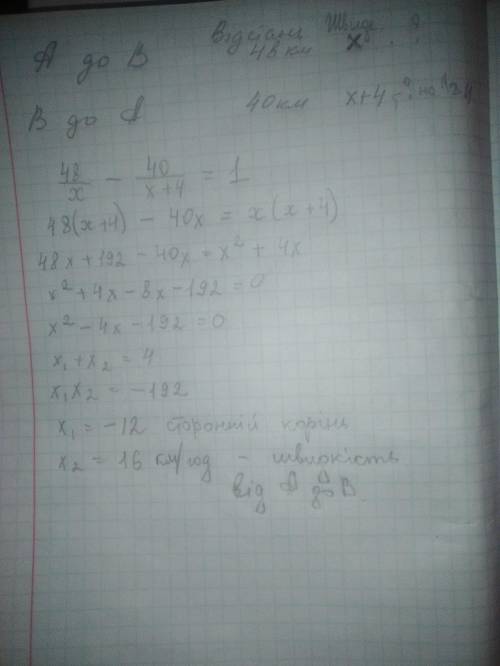 Відстань Швид.
А до В 48 км х - ?
В до А 40 км х+4 - ? на 1 г
48/x − 40/(x+4) = 1
48(x+4) − 40x = x(x+4)
48x + 192 − 40x = x² + 4x
x² + 4x − 8x − 192 = 0
x² − 4x − 192 = 0
x₁ + x₂ = 4
x₁x₂ = −192
x₁ = −12 сторонній корінь
x₂ = 16 км/год − швидкість
від А до В.